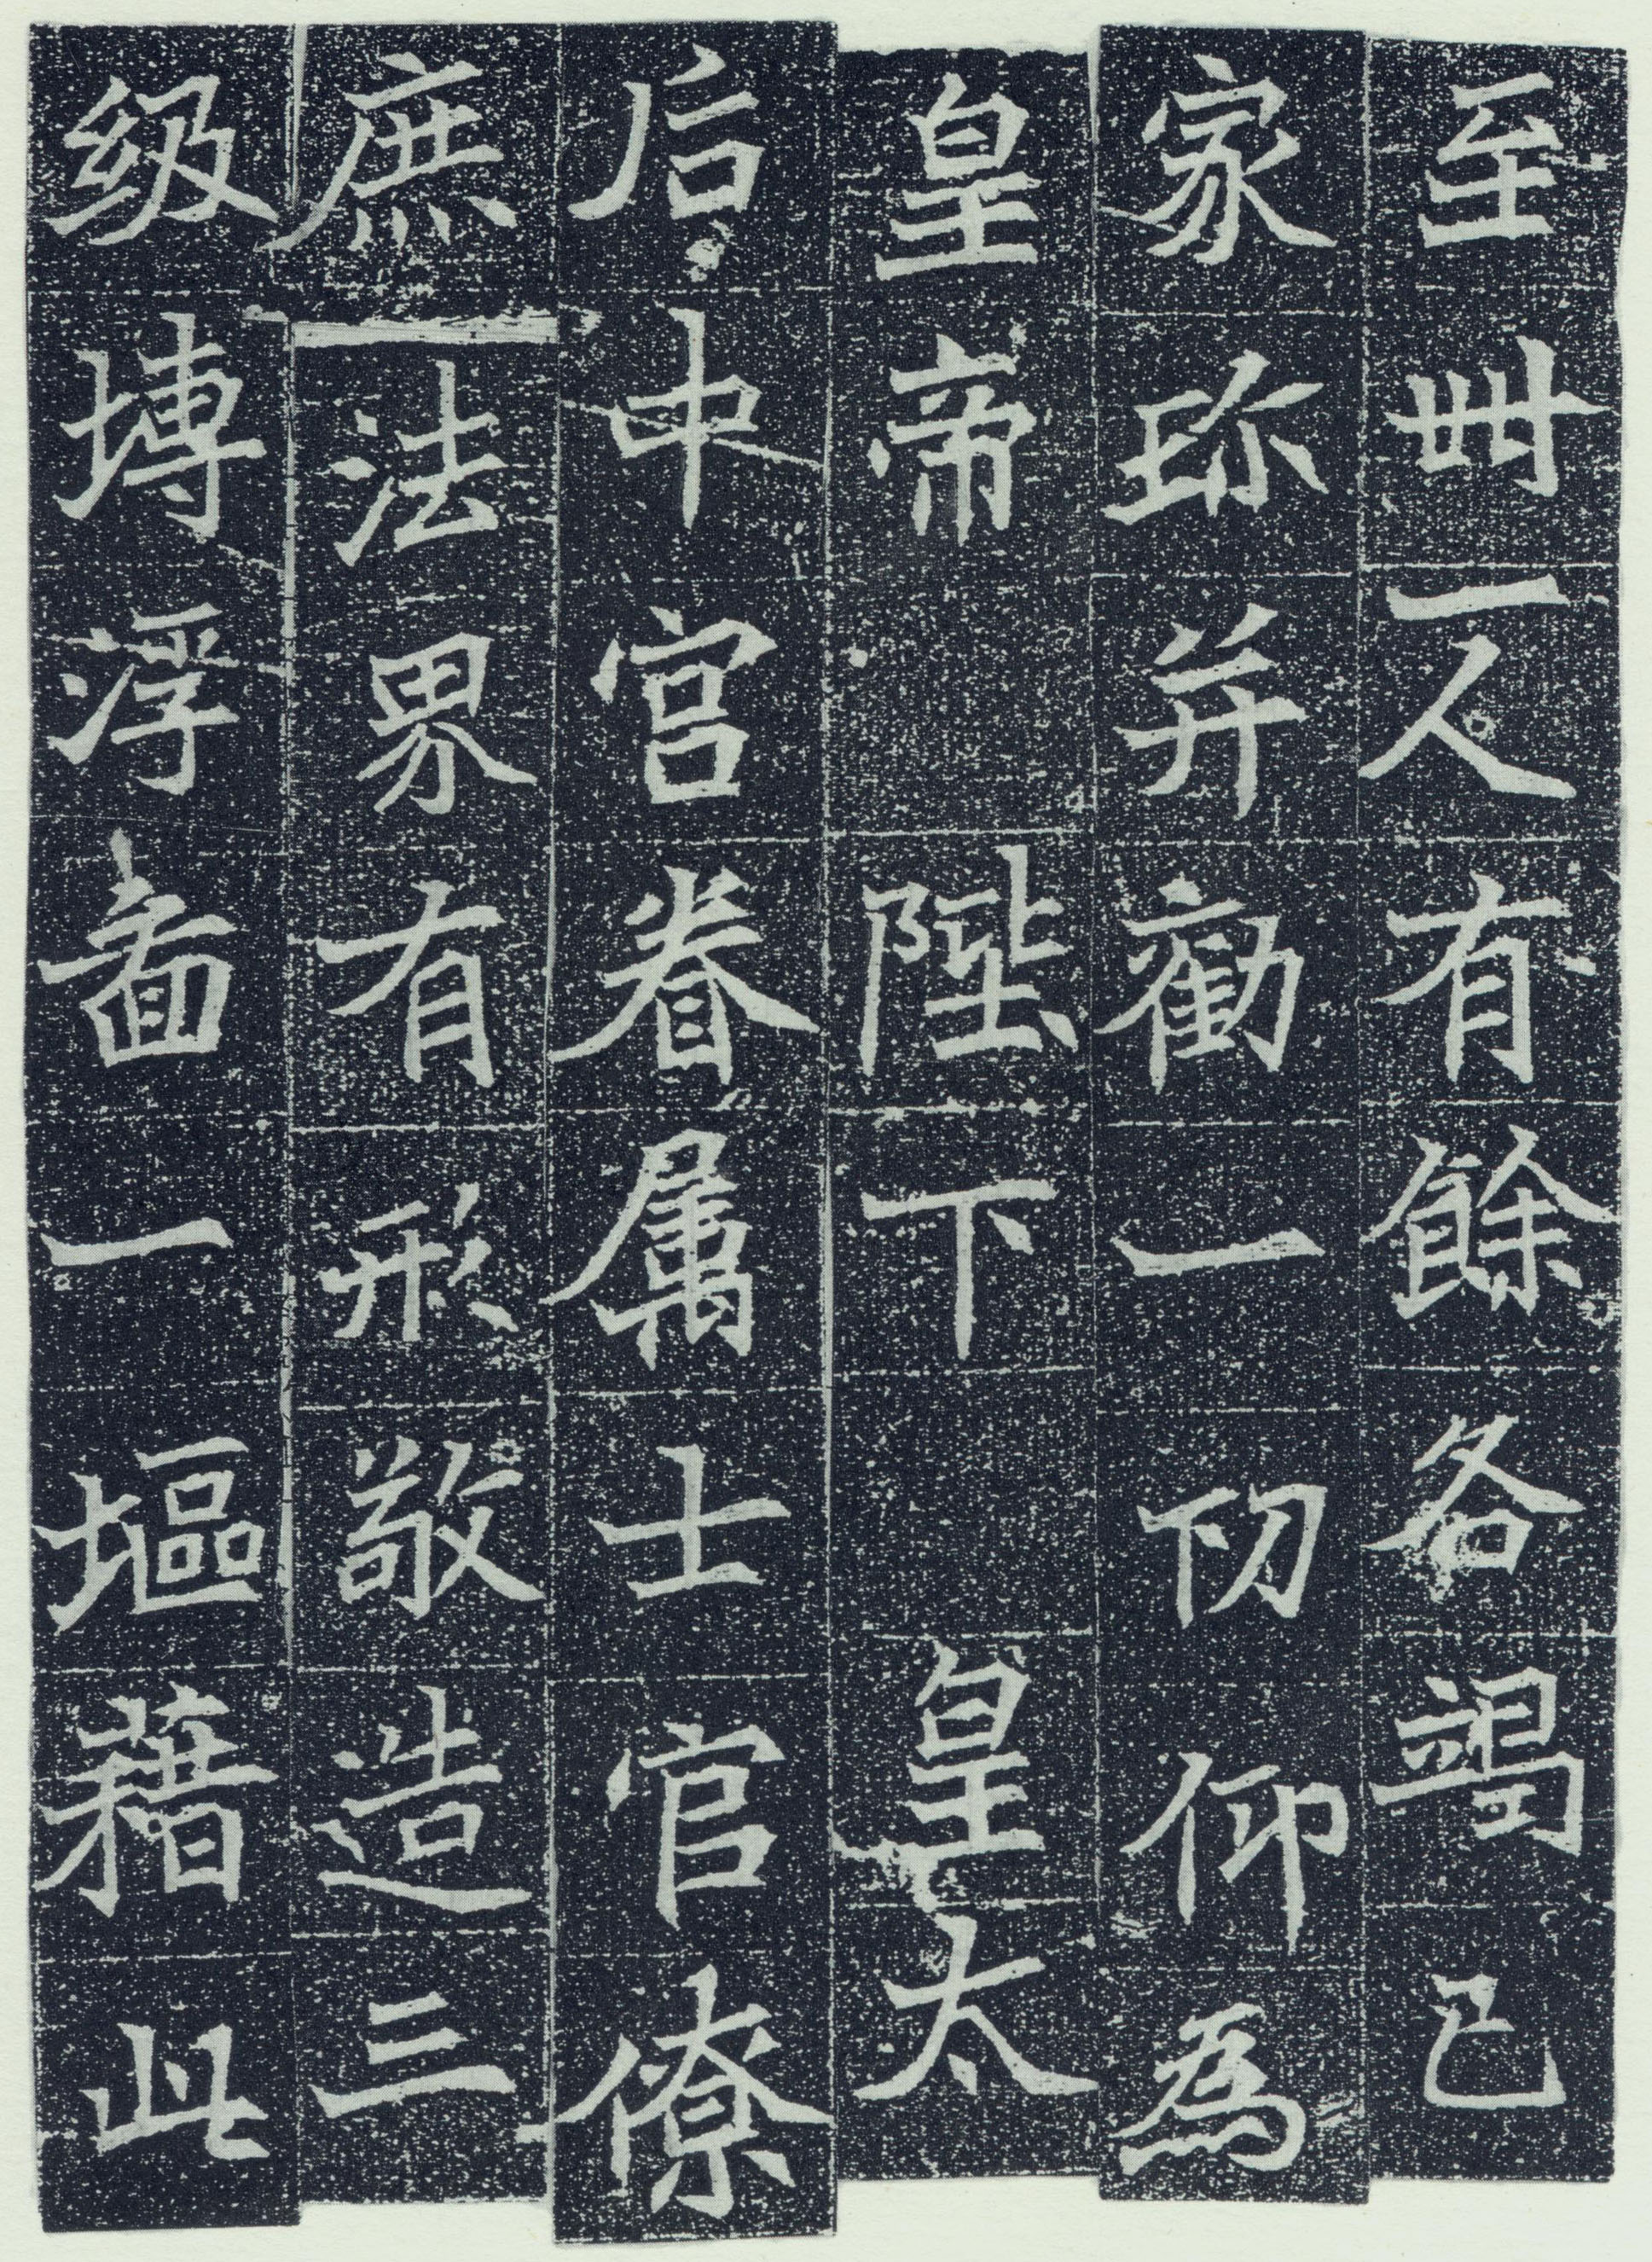 至卌一人有餘各竭己
家珎并勸一切仰為
皇帝　陛下　皇太
后中宫眷属士官僚
庶法界有形敬造三
级塼浮啚一塸藉此